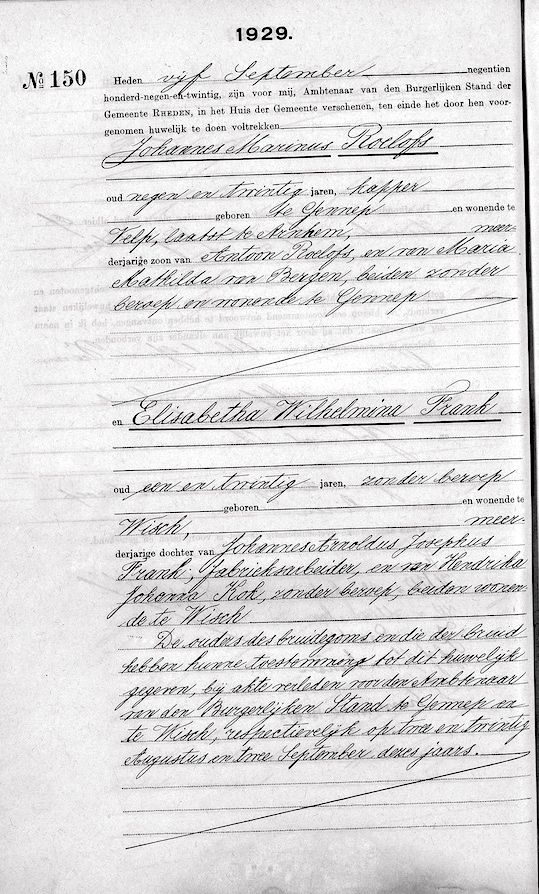 1929.
№ 150
Heden vijf September negentien
honderd-negen-en-twintig, zijn voor mij, Ambtenaar van den Burgerlijken Stand der
Gemeente RHEDEN, in het Huis der Gemeente verschenen, ten einde het door hen voor-
genomen huwelijk te doen voltrekken
Johannes Marinus Roelofs
oud negen en twintig jaren, kapper
geboren te Gennep en wonende te
Velp, laatst te Arnhem, meer-
derjarige zoon van Antoon Roelofs, en van Maria
Mathilda van Bergen, beiden zonder
beroep en wonende te Gennep
en Elisabetha Wilhelmina Frank
oud een en twintig jaren, zonder beroep
geboren en wonende te
Wisch, meer-
derjarige dochter van Johannes Arnoldus Josephus
Frank, fabrieksarbeider, en van Hendrika
Johanna Kok, zonder beroep, beiden wonen-
de te Wisch
De ouders des bruidegoms en die der bruid
hebben hunne toestemming tot dit huwelijk
gegeven, bij akte verleden voor den Ambtenaar
van den Burgerlijken Stand te Gennep en
te Wisch, respectievelijk op twee en twintig
Augustus en twee September dezes jaars.